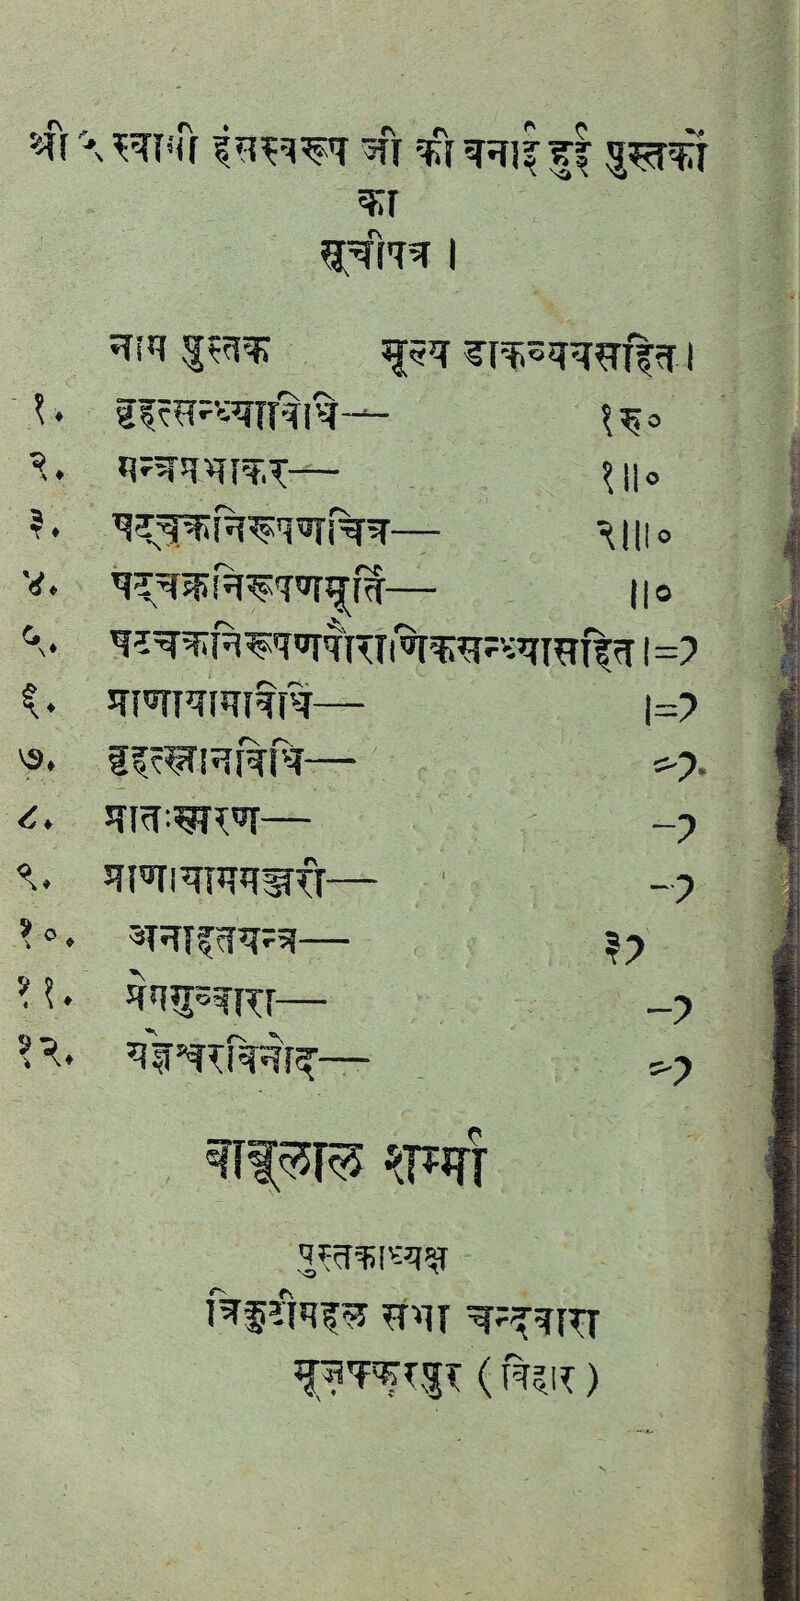 श्री ५ स्वामी हंसस्वरूप जी की बनाई हुई पुस्तकों
का
सूचीपत्र ।
नाम पुस्तक मूल्य डाकव्ययसहित ।
१. बृहत्सन्ध्याविधि— १६०
२. मन्त्रप्रभाकर— १॥०
३. षट्चक्रनिरूपणचित्र— २॥।०
४. षट्चक्रनिरूपणमूर्ति— ॥०
५. षट्चक्रनिरूपणपौराणिकसन्ध्यासहित ।=)
६. प्राणायामविधि— ।=)
७. बृहत्स्नानविधि— =)
८. प्रातःस्मरण— -)
९. प्राणायाममञ्जरी— -)
१०. अनाहतयन्त्र— ३)
११. प्रेमगुब्बारा— -)
१२. यज्ञेश्वरविनोद— =)
बाबूलाल शर्म्मा
पुस्तकाध्यक्ष
त्रिकुटीमहल सभा चन्दवारा
मूजफ्फरपुर ( बिहार )